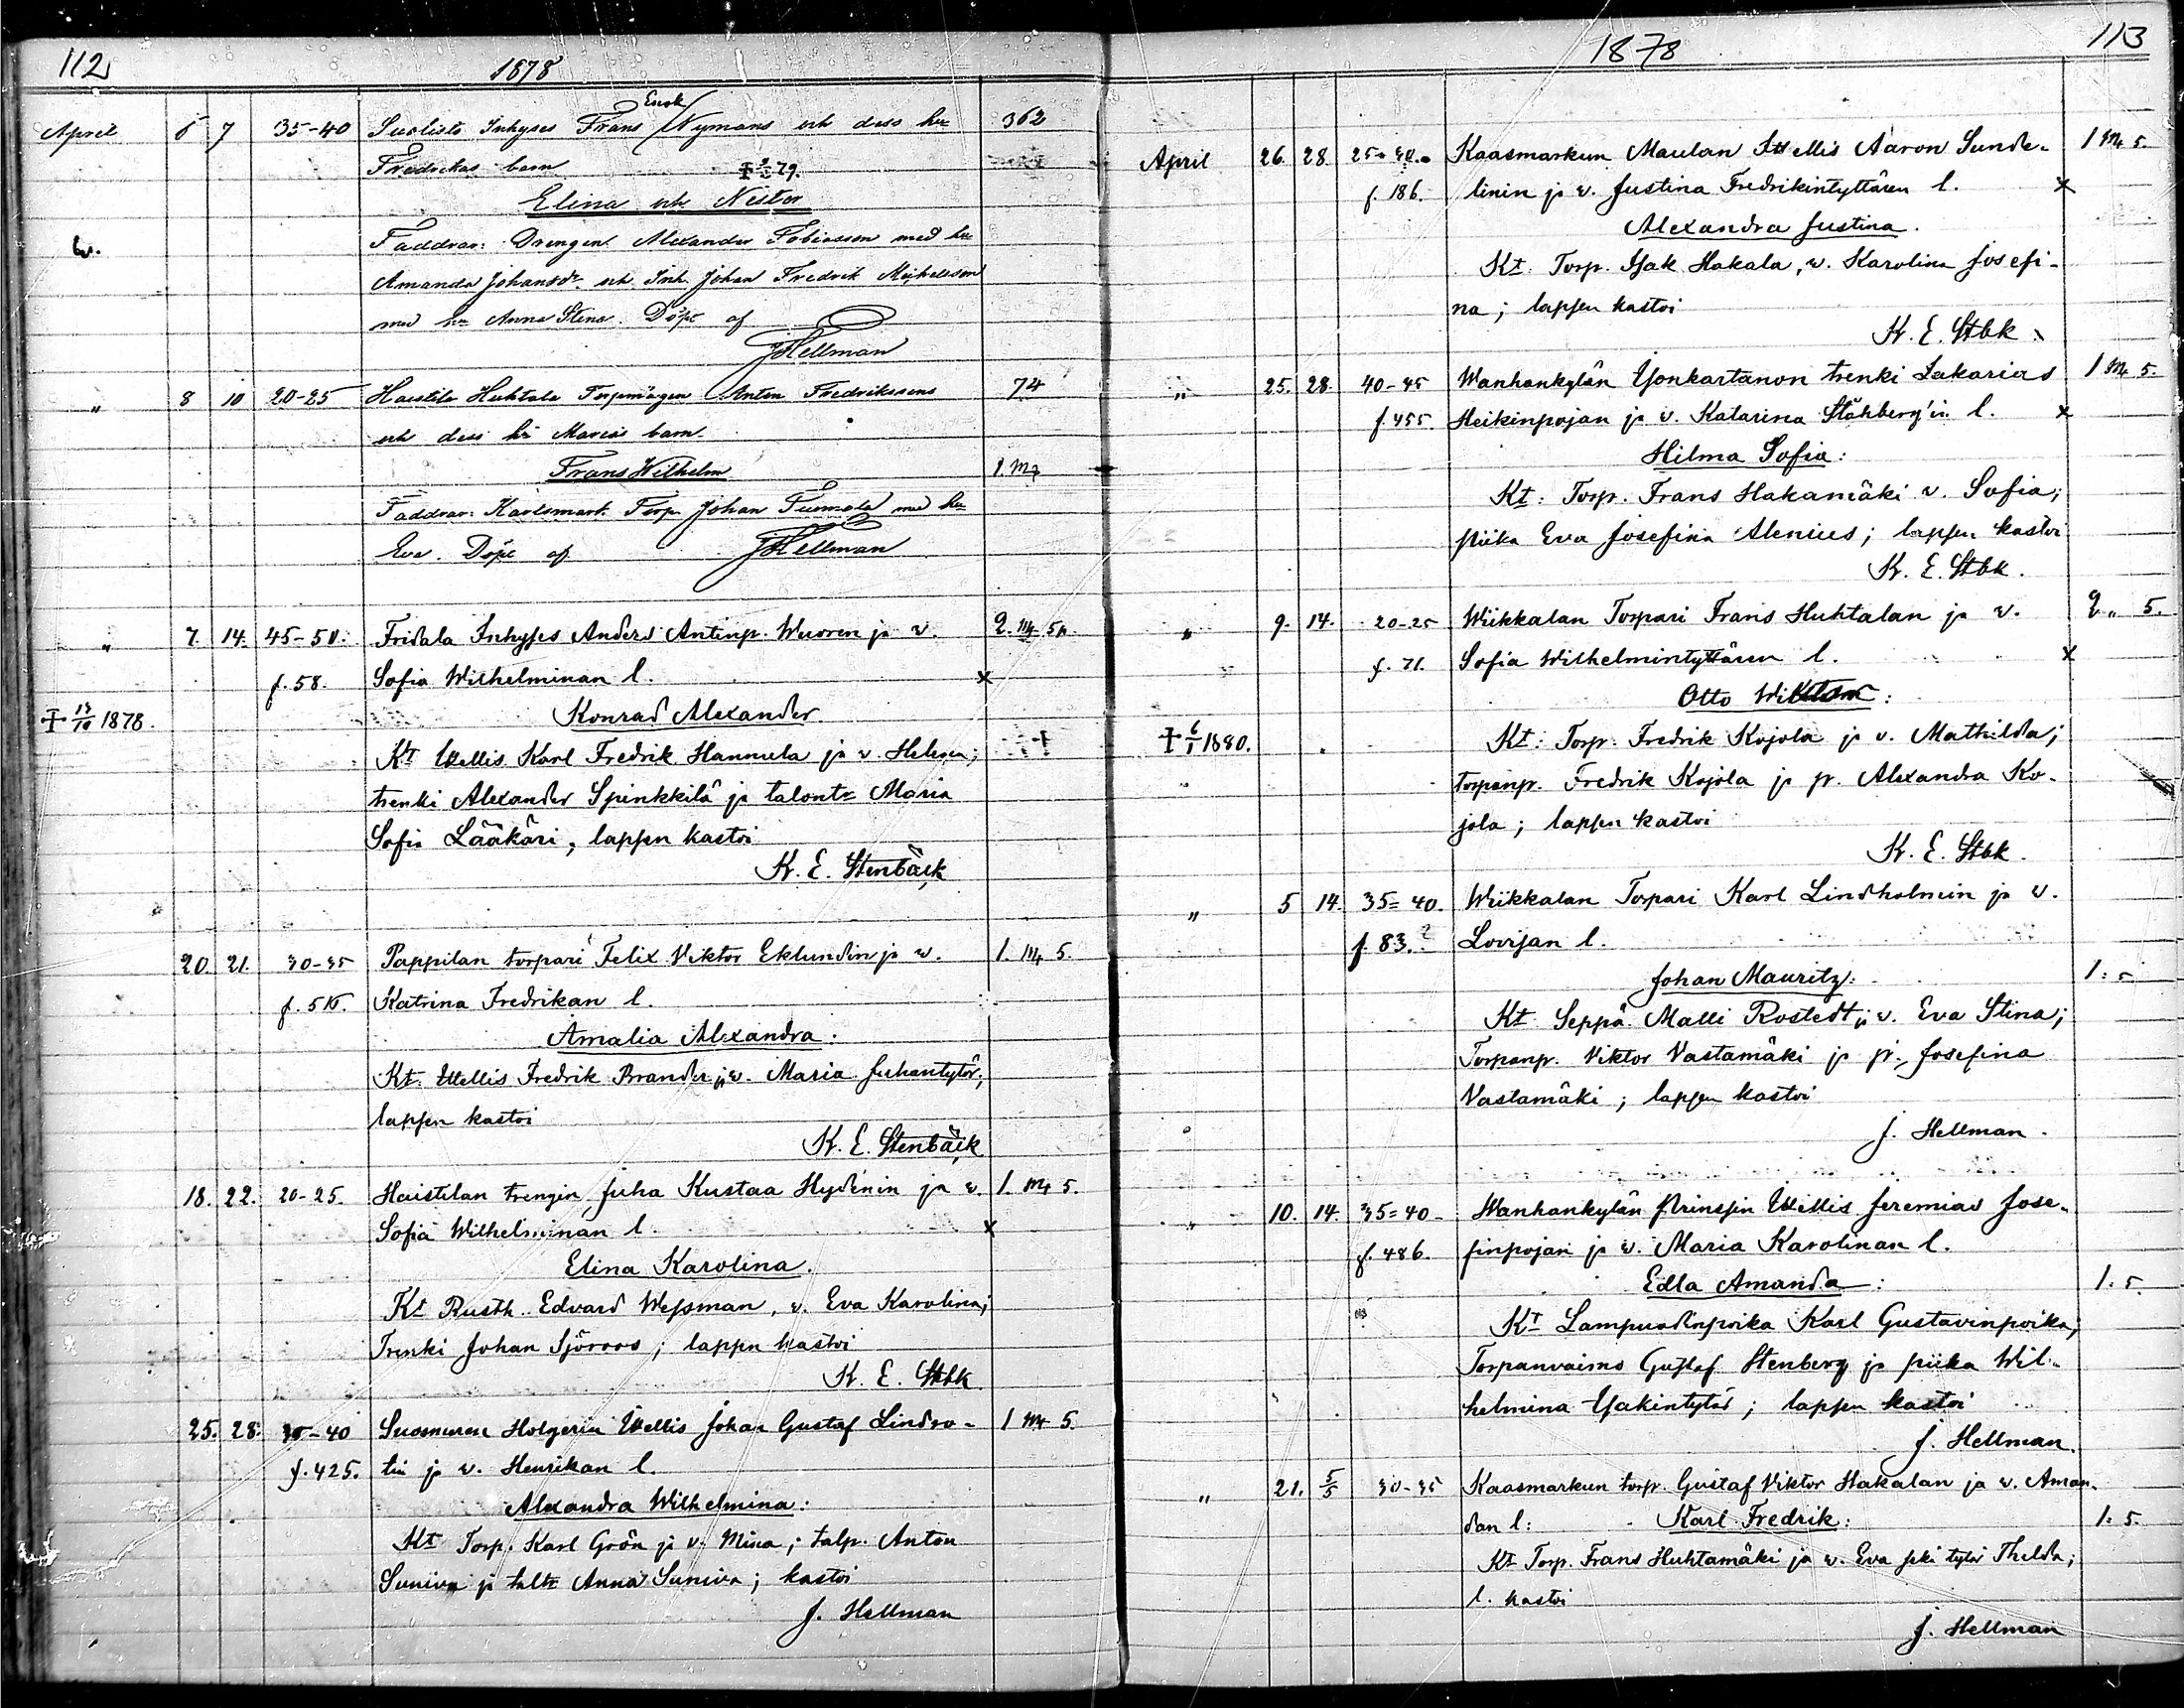 112
1878
April 6 7 35-40 Suolisto Inhyses Frans Enok Nymans och dess hu 362
Fredrikas barn
Elina och Nestor
Faddrar: Drengen Alexander Tobiasson med hu
Amanda Johansdr. och Inh. Johan Fredrik Michelsson
med hu Anna Stina. Döpt af
JHellman
„ 8 10 20-25 Haistila Huhtala Torpmågen Anton Fredrikssons 74
och dess hu Marias barn.
Frans Wilhelm 1 Mk
Faddrar: Karlsmark Torp. Johan Tuomola med hu
Eva. Döpt af JHellman
„ 7. 14. 45-50. Fridala Inhyses Anders Antinp. Wuoren ja v. 2 Mk 50.
f. 58. Sofia Wilhelminan l. x
Konrad Alexander.
† 13/10 1878.
Kt Itellis Karl Fredrik Hannula ja v. Helena;
trenki Alexander Spinkkilä ja talont= Maria
Sofia Lääkäri, lapsen kastoi
K. E. Stenbäck
20. 21. 30-35 Pappilan torpari Felix Viktor Eklundin ja v. 1. Mk 5.
Katrina Fredrikan l.
Amalia Alexandra:
Kt: Itellis Fredrik Brander ja v. Maria Juhantytär;
lapsen kastoi
K. E. Stenbäck
18. 22. 20-25. Haistilan trengin Juha Kustaa Hydénin ja v. 1. Mk 5.
Sofia Wilhelminan l. x
Elina Karolina.
Kt Rusth. Edvard Wessman, v. Eva Karolina;
Trenki Johan Sjöroos; lapsen kastoi
K. E. Stbk
25. 28. 35-40 Suosmeren Holgerin Itellis Johan Gustaf Lindro- 1 Mk 5.
f. 425. tin ja v. Henrikan l.
Alexandra Wilhelmina:
Kt Torp. Karl Grön ja v. Mina; talp. Anton
Suniva ja taltr Anna Suniva; kastoi
J. Hellman
1878
113
April 26. 28. 25-30. Kaasmarkun Maulan Itellis Aaron Sunde- 1 Mk 5.
f. 186. linin ja v. Justina Fredrikintyttären l. x
Alexandra Justina.
Kt: Torp. Isak Hakala, v. Karolina Josefi-
na; lapsen kastoi
K. E. Stbk
„ 25. 28. 40-45 Wanhankylän Isonkartanon trenki Sakarias 1 Mk 5.
f. 455. Heikinpojan ja v. Katarina Ståhberg'in l. x
Hilma Sofia:
Kt: Torp. Frans Hakamäki v. Sofia;
piika Eva Josefina Alenius; lapsen kastoi
K. E. Stbk.
„ 9. 14. 20-25 Wiikkalan Torpari Frans Huhtalan ja v. 2 „ 5.
f. 71. Sofia Wilhelmintyttären l. x
Otto Wiktor:
† 6/1 1880. Kt: Torp. Fredrik Kojola ja v. Mathilda;
torpanp. Fredrik Kojola ja p. Alexandra Ko-
jola; lapsen kastoi
K. E. Stbk.
„ 5 14. 35=40. Wiikkalan Torpari Karl Lindholmin ja v.
f. 83. Lovisan l.
Johan Mauritz: 1: 5
Kt Seppä Malli Rostedt ja v. Eva Stina;
Torpanp. Viktor Vastamäki ja p. Josefina
Vastamäki; lapsen kastoi
J. Hellman.
„ 10. 14. 35=40- Wanhankylän Prinssin Itellis Jeremias Jose-
f. 486. finpojan ja v. Maria Karolinan l.
Edla Amanda: 1. 5.
Kt Lampuodinpoika Karl Gustavinpoika;
Torpanvaimo Gustaf Stenberg ja piika Wil-
helmina Isakintytär; lapsen kastoi
J. Hellman.
„ 21. 5/5 30-35 Kaasmarkun torp. Gustaf Viktor Hakalan ja v. Aman-
dan l: Karl Fredrik: 1. 5.
Kt Torp. Frans Huhtamäki ja v. Eva tytär Thelda;
l. kastoi
J. Hellman